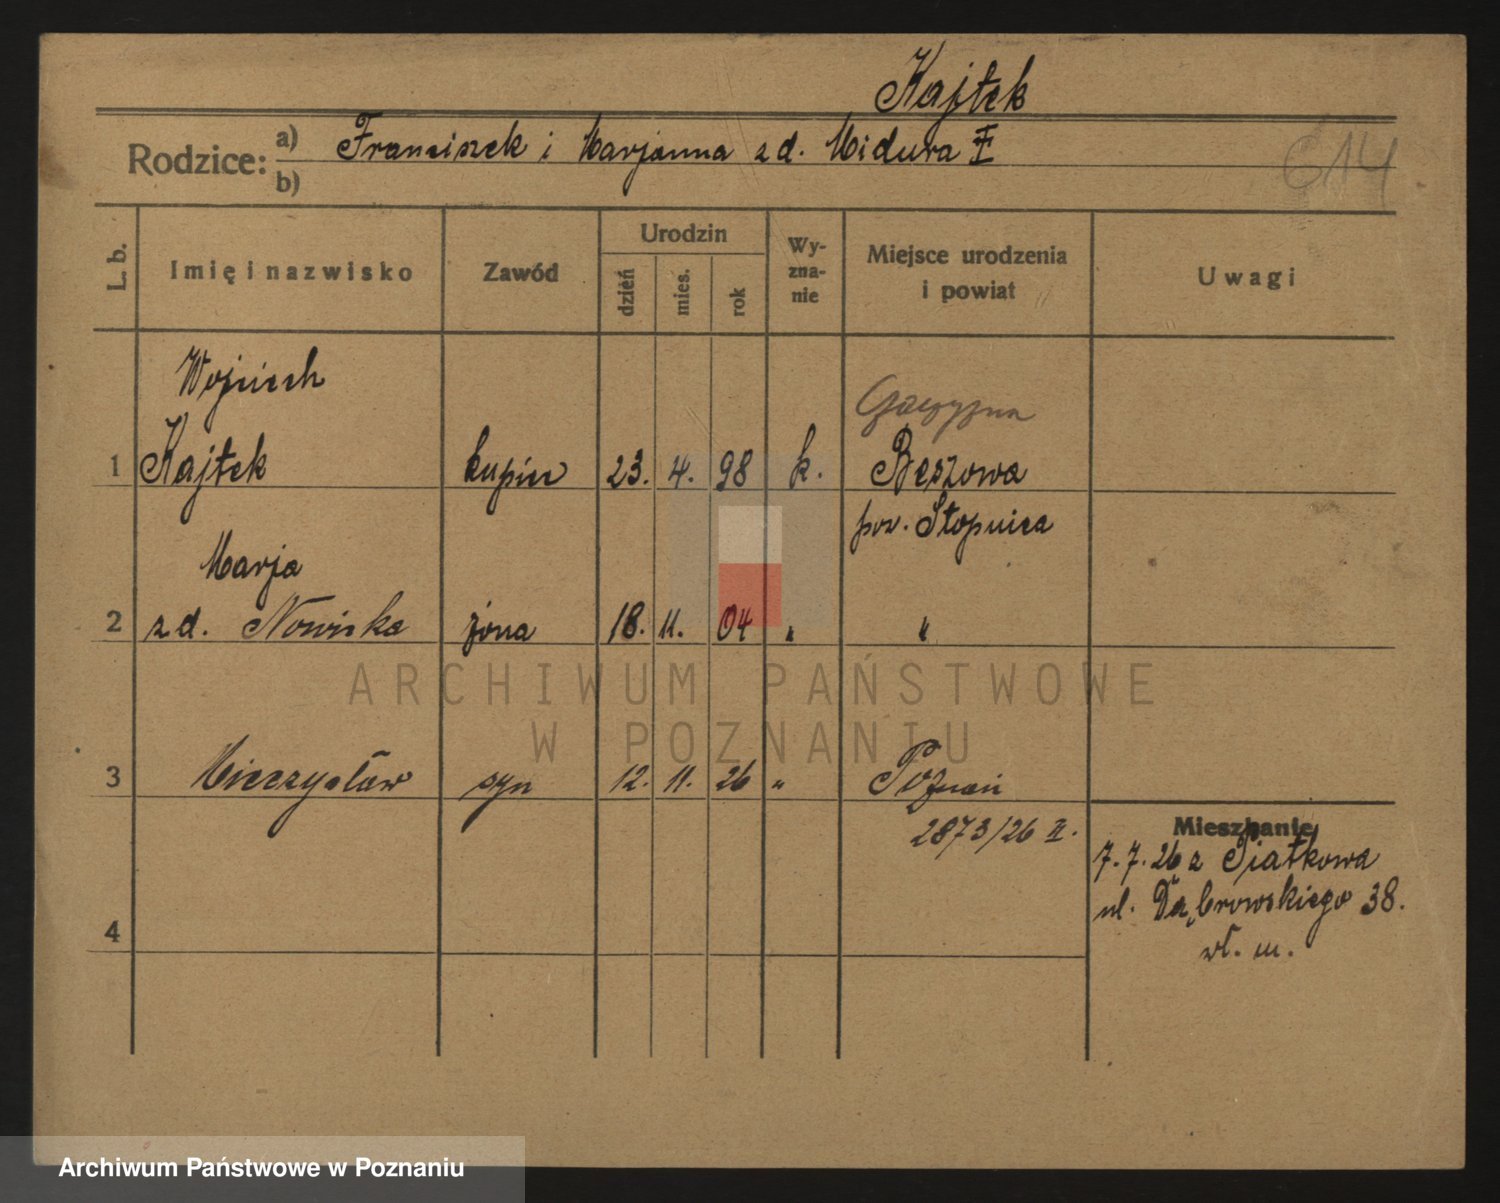 Kajtek
Rodzice: a) Franciszek i Marjanna z d. Midura
b)
614
L. b.
Imię i nazwisko
Zawód
Urodzin
dzień
mies.
rok
Wy-
zna-
nie
Miejsce urodzenia
i powiat
Uwagi
Wojciech
1 Kajtek kupiec 23. 4. 98 k. Beszowa
pow. Stopnica
Marja
2 z d. Nowicka żona 18. 11. 04 " "
ARCHIWUM PAŃSTWOWE
W POZNANIU
3 Mieczysław syn 12. 11. 26 " Poznań
2873/26 II.
Mieszkanie
7.7.26 z Piątkowa
ul. Dąbrowskiego 38.
wł. m.
4
Archiwum Państwowe w Poznaniu